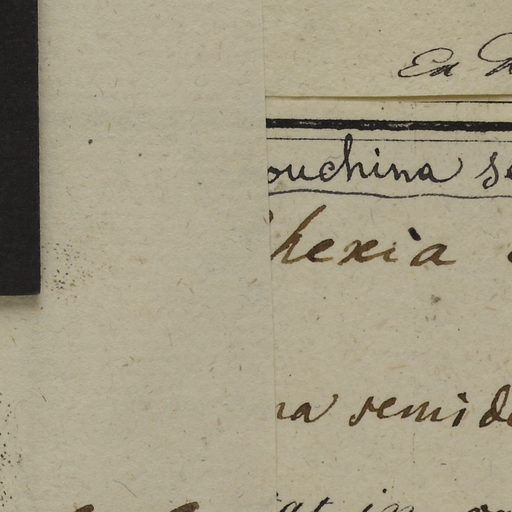 Ex
ouchina se
hexia
na semide
at in